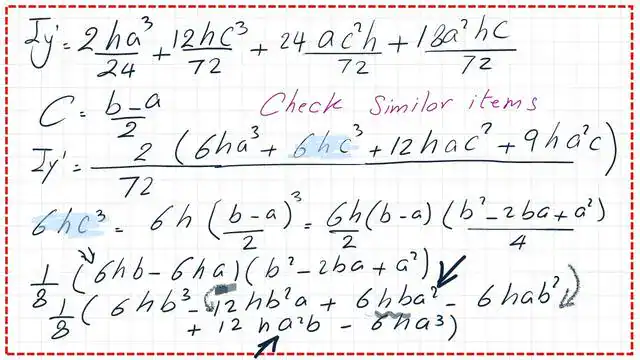 Iy' = 2ha³/24 + 12hc³/72 + 24 ac²h/72 + 18a²hc/72
C = (b-a)/2 Check Similar items
Iy' = 2/72 (6ha³ + 6hc³ + 12hac² + 9ha²c)
6hc³ = 6h ((b-a)/2)³ = 6h/2 (b-a) (b²-2ba+a²)/4
1/8 (6hb-6ha)(b²-2ba+a²)
1/8 (6hb³ - 12hb²a + 6hba² - 6hab²
+ 12ha²b - 6ha³)